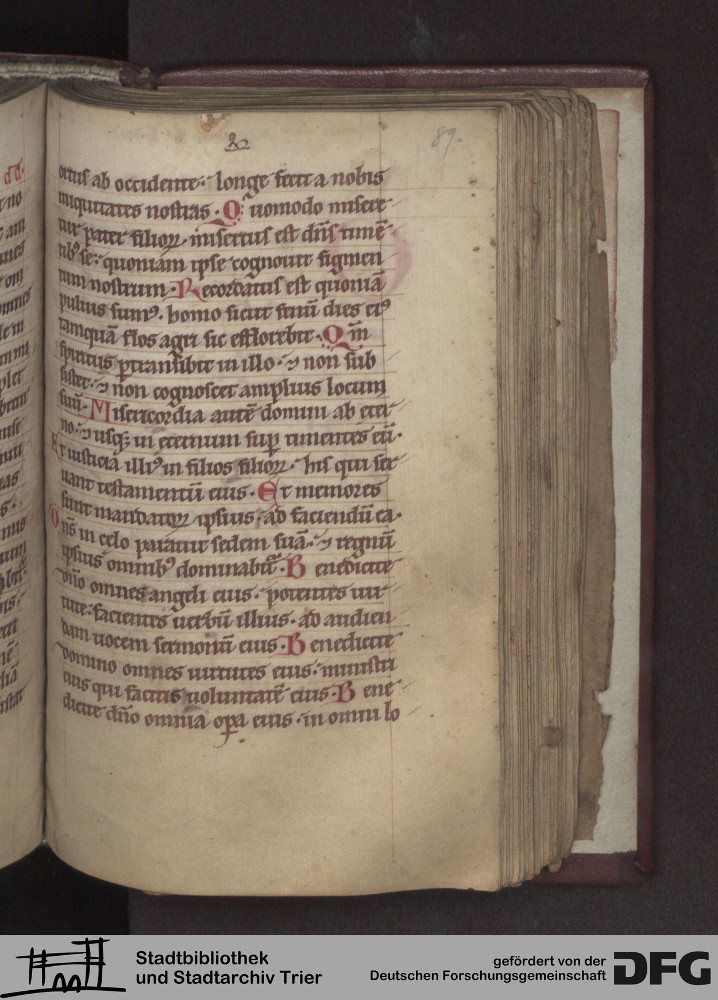 89.
ortus ab occidente· longe fecit a nobis
iniquitates nostras · Quomodo misere
tur pater filioꝝ· misertus est dn̄s timē
tibꝰ se· quoniam ipse cognouit figmen
tum nostrum · Recordatus est quoniā
puluis sumꝰ· homo sicut fenū dies eiꝰ
tamquā flos agri sic efflorebit · Qm̄
spiritus ꝑtransibit in illo· ⁊ non sub
sistet· ⁊ non cognoscet amplius locum
suū· Misericordia autē domini ab eter
no· ⁊ usqꝫ in eternum suꝑ timentes eū·
Et iusticia illiꝰ in filios filioꝝ· his qui ser
uant testamentū eius · Et memores
sunt mandatoꝝ ipsius· ad faciendū ea·
Dn̄s in celo parauit sedem suā· ⁊ regnū
ipsius omnibꝰ dominabit᷑· Benedicite
dn̄o omnes angeli eius · potentes uir
tute· facientes uerbū illius· ad audien
dam uocem sermonū eius· Benedicite
domino omnes uirtutes eius· ministri
eius qui facitis uoluntatē eius· Bene
dicite dn̄o omnia oꝑa eius · in omni lo
Stadtbibliothek
und Stadtarchiv Trier
gefördert von der
Deutschen Forschungsgemeinschaft
DFG